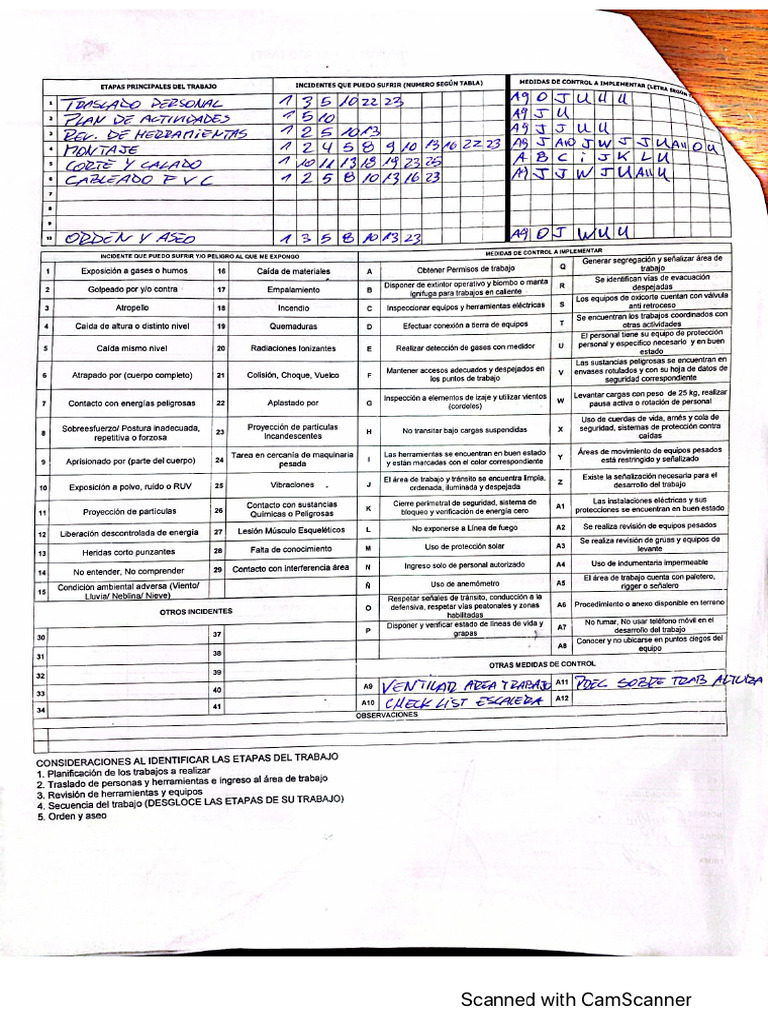 ETAPAS PRINCIPALES DEL TRABAJO INCIDENTES QUE PUEDO SUFRIR (NUMERO SEGÚN TABLA) MEDIDAS DE CONTROL A IMPLEMENTAR (LETRA SEGÚN
1 TRASLADO PERSONAL 1 3 5 10 22 23 A9 O J U U U
2 PLAN DE ACTIVIDADES 1 5 10 A9 J U
3 REV. DE HERRAMIENTAS 1 2 5 10 13 A9 J J U U
4 MONTAJE 1 2 4 5 8 9 10 13 16 22 23 A9 J A10 J W J J U A11 O U
5 CORTE Y CALADO 1 10 11 13 18 19 23 25 A B C i J K L U
6 CABLEADO P V C 1 2 5 8 10 13 16 23 A9 J J W J U A11 U
7
8
9
10 ORDEN Y ASEO 1 3 5 8 10 13 23 A9 O J W U U
INCIDENTE QUE PUEDO SUFRIR Y/O PELIGRO AL QUE ME EXPONGO MEDIDAS DE CONTROL A IMPLEMENTAR
1 Exposición a gases o humos 16 Caída de materiales A Obtener Permisos de trabajo Q Generar segregación y señalizar área de trabajo
2 Golpeado por y/o contra 17 Empalamiento B Disponer de extintor operativo y biombo o manta ignifuga para trabajos en caliente R Se identifican vías de evacuación despejadas
3 Atropello 18 Incendio C Inspeccionar equipos y herramientas eléctricas S Los equipos de oxicorte cuentan con válvula anti retroceso
4 Caída de altura o distinto nivel 19 Quemaduras D Efectuar conexión a tierra de equipos T Se encuentran los trabajos coordinados con otras actividades
5 Caída mismo nivel 20 Radiaciones Ionizantes E Realizar detección de gases con medidor U El personal tiene su equipo de protección personal y especifico necesario y en buen estado
6 Atrapado por (cuerpo completo) 21 Colisión, Choque, Vuelco F Mantener accesos adecuados y despejados en los puntos de trabajo V Las sustancias peligrosas se encuentran en envases rotulados y con su hoja de datos de seguridad correspondiente
7 Contacto con energías peligrosas 22 Aplastado por G Inspección a elementos de izaje y utilizar vientos (cordeles) W Levantar cargas con peso de 25 kg, realizar pausa activa o rotación de personal
8 Sobreesfuerzo/ Postura inadecuada, repetitiva o forzosa 23 Proyección de partículas Incandescentes H No transitar bajo cargas suspendidas X Uso de cuerdas de vida, arnés y cola de seguridad, sistemas de protección contra caídas
9 Aprisionado por (parte del cuerpo) 24 Tarea en cercanía de maquinaria pesada I Las herramientas se encuentran en buen estado y están marcadas con el color correspondiente Y Áreas de movimiento de equipos pesados está restringido y señalizado
10 Exposición a polvo, ruido o RUV 25 Vibraciones J El área de trabajo y tránsito se encuentra limpia, ordenada, iluminada y despejada Z Existe la señalización necesaria para el desarrollo del trabajo
11 Proyección de partículas 26 Contacto con sustancias Químicas o Peligrosas K Cierre perimetral de seguridad, sistema de bloqueo y verificación de energía cero A1 Las instalaciones eléctricas y sus protecciones se encuentran en buen estado
12 Liberación descontrolada de energía 27 Lesión Músculo Esqueléticos L No exponerse a Línea de fuego A2 Se realiza revisión de equipos pesados
13 Heridas corto punzantes 28 Falta de conocimiento M Uso de protección solar A3 Se realiza revisión de grúas y equipos de levante
14 No entender, No comprender 29 Contacto con interferencia área N Ingreso solo de personal autorizado A4 Uso de indumentaria impermeable
15 Condición ambiental adversa (Viento/ Lluvia/ Neblina/ Nieve) Ñ Uso de anemómetro A5 El área de trabajo cuenta con paletero, rigger o señalero
OTROS INCIDENTES O Respetar señales de tránsito, conducción a la defensiva, respetar vías peatonales y zonas habilitadas A6 Procedimiento o anexo disponible en terreno
30 37 P Disponer y verificar estado de líneas de vida y grapas A7 No fumar, No usar teléfono móvil en el desarrollo del trabajo
A8 Conocer y no ubicarse en puntos ciegos del equipo
31 38
32 39 OTRAS MEDIDAS DE CONTROL
33 40 A9 VENTILAR AREA TRABAJO A11 PDEC SOBRE TRAB ALTURA
34 41 A10 CHECK LIST ESCALERA A12
OBSERVACIONES
CONSIDERACIONES AL IDENTIFICAR LAS ETAPAS DEL TRABAJO
1. Planificación de los trabajos a realizar
2. Traslado de personas y herramientas e ingreso al área de trabajo
3. Revisión de herramientas y equipos
4. Secuencia del trabajo (DESGLOCE LAS ETAPAS DE SU TRABAJO)
5. Orden y aseo
Scanned with CamScanner